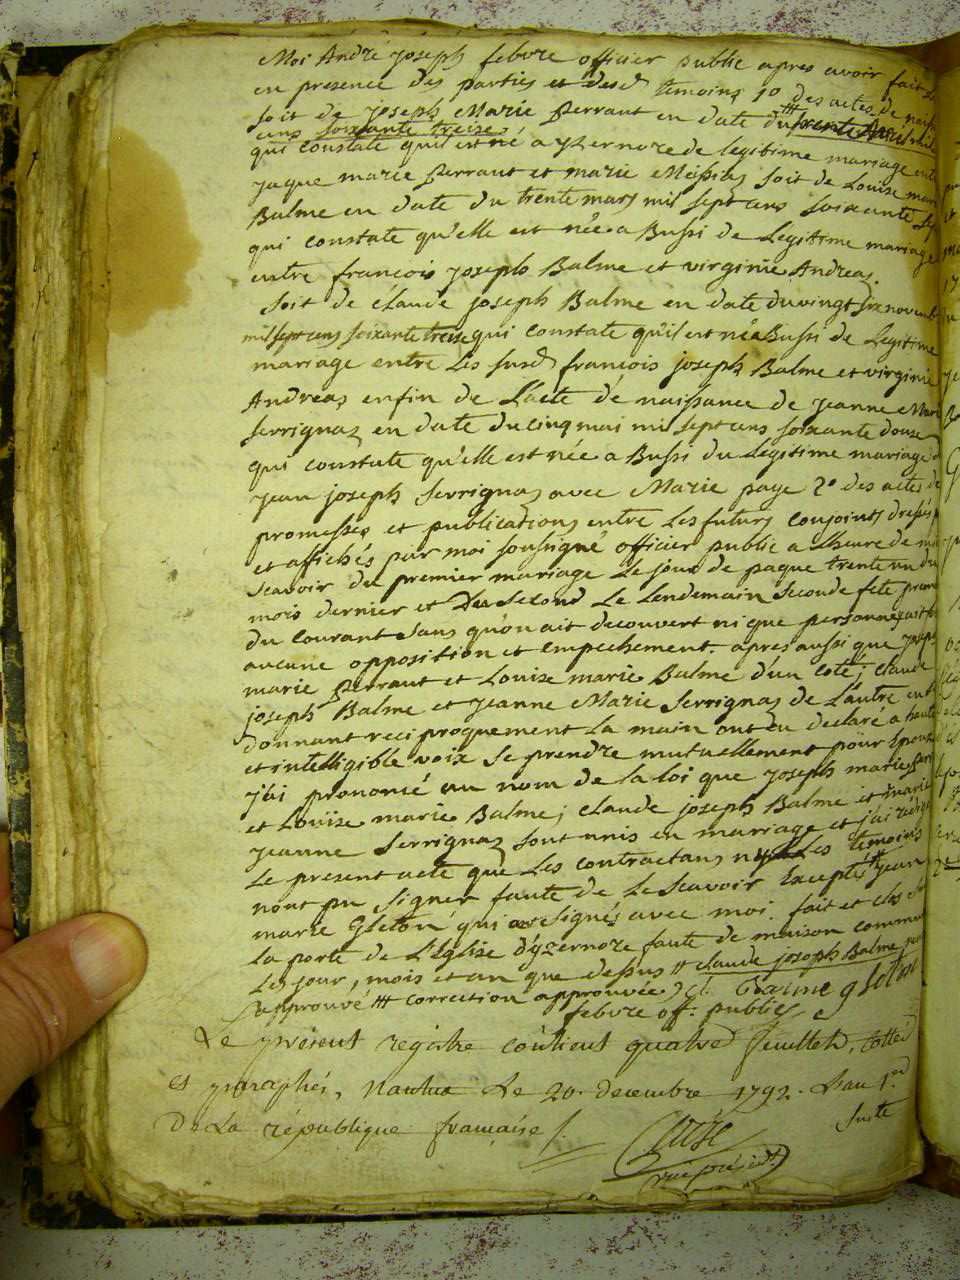 Moi André joseph febvre officier public apres avoir fait
en presence des parties et desd temoins 1o des actes de
soit de joseph Marie perraut en date du trente
cens soixante treise
qui constate quil est né a yzernore de legitime mariage
jaque marie perraut et marie Moissiaz soit de Louise
Balme en date du trente mars mil sept cens soixante
qui constate qu'elle est née a Bussi de Legitime mariage
entre francois joseph Balme et virginie Andreaz
soit de claude joseph Balme en date du vingt six
mil sept cens soixante treise qui constate qu'il est né a Bussi de Legitime
mariage entre Les susd françois joseph Balme et virginie
Andreas enfin de L'acte de naissance de jeanne
serrignaz en date du cinq mai mil sept cens soixante douze
qui constate qu'elle est née a Bussi du Legitime mariage
jean joseph serrignaz avec Marie page 2o des actes de
promesses et publications entre Les futurs conjoints dressés
et affichés par moi soussigné officier public a Lheure de
scavoir du premier mariage Le jour de paque trente un du
mois dernier et du second Le Lendemain seconde fete
du courant sans qu'on ait decouvert ni que personne
aucune opposition et empechement. apres aussi que joseph
marie perraut et Louise marie Balme d'un coté; claude
joseph Balme et jeanne Marie serrignaz de L'autre
donnant reciproquement La main ont eu declaré a haute
et intelligible voix se prendre mutuellement pour Epoux
j'ai prononcé au nom de la loi que joseph marie
et Louise marie Balme; claude joseph Balme et marie
jeanne serrignaz sont unis en mariage et j'ai redigé
Le present acte que Les contractans Les temoins
nont pu signer faute de Le scavoir Exceptés jean
marie Gleton qui signés avec moi. fait et clos
La porte de L'Eglise d'yzernore faute de maison
Les jour, mois et an que dessus claude joseph Balme
approuvé correction approuvée cl. Balme gleton
febvre off. public
Le présent registre contient feuillets, cottés
et paraphés, nantua Le 20. decembre 1792. L'an 1.er
De La république française